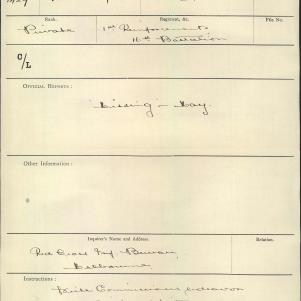 Rank.
Regiment, &c.
File No.
Private
1st Reinforcements
16th Battalion
C/L
OFFICIAL REPORTS :
"Missing" – May.
Other Information :
Inquirer's Name and Address.
Relation.
Red Cross Inq. Bureau,
Melbourne
Instructions :